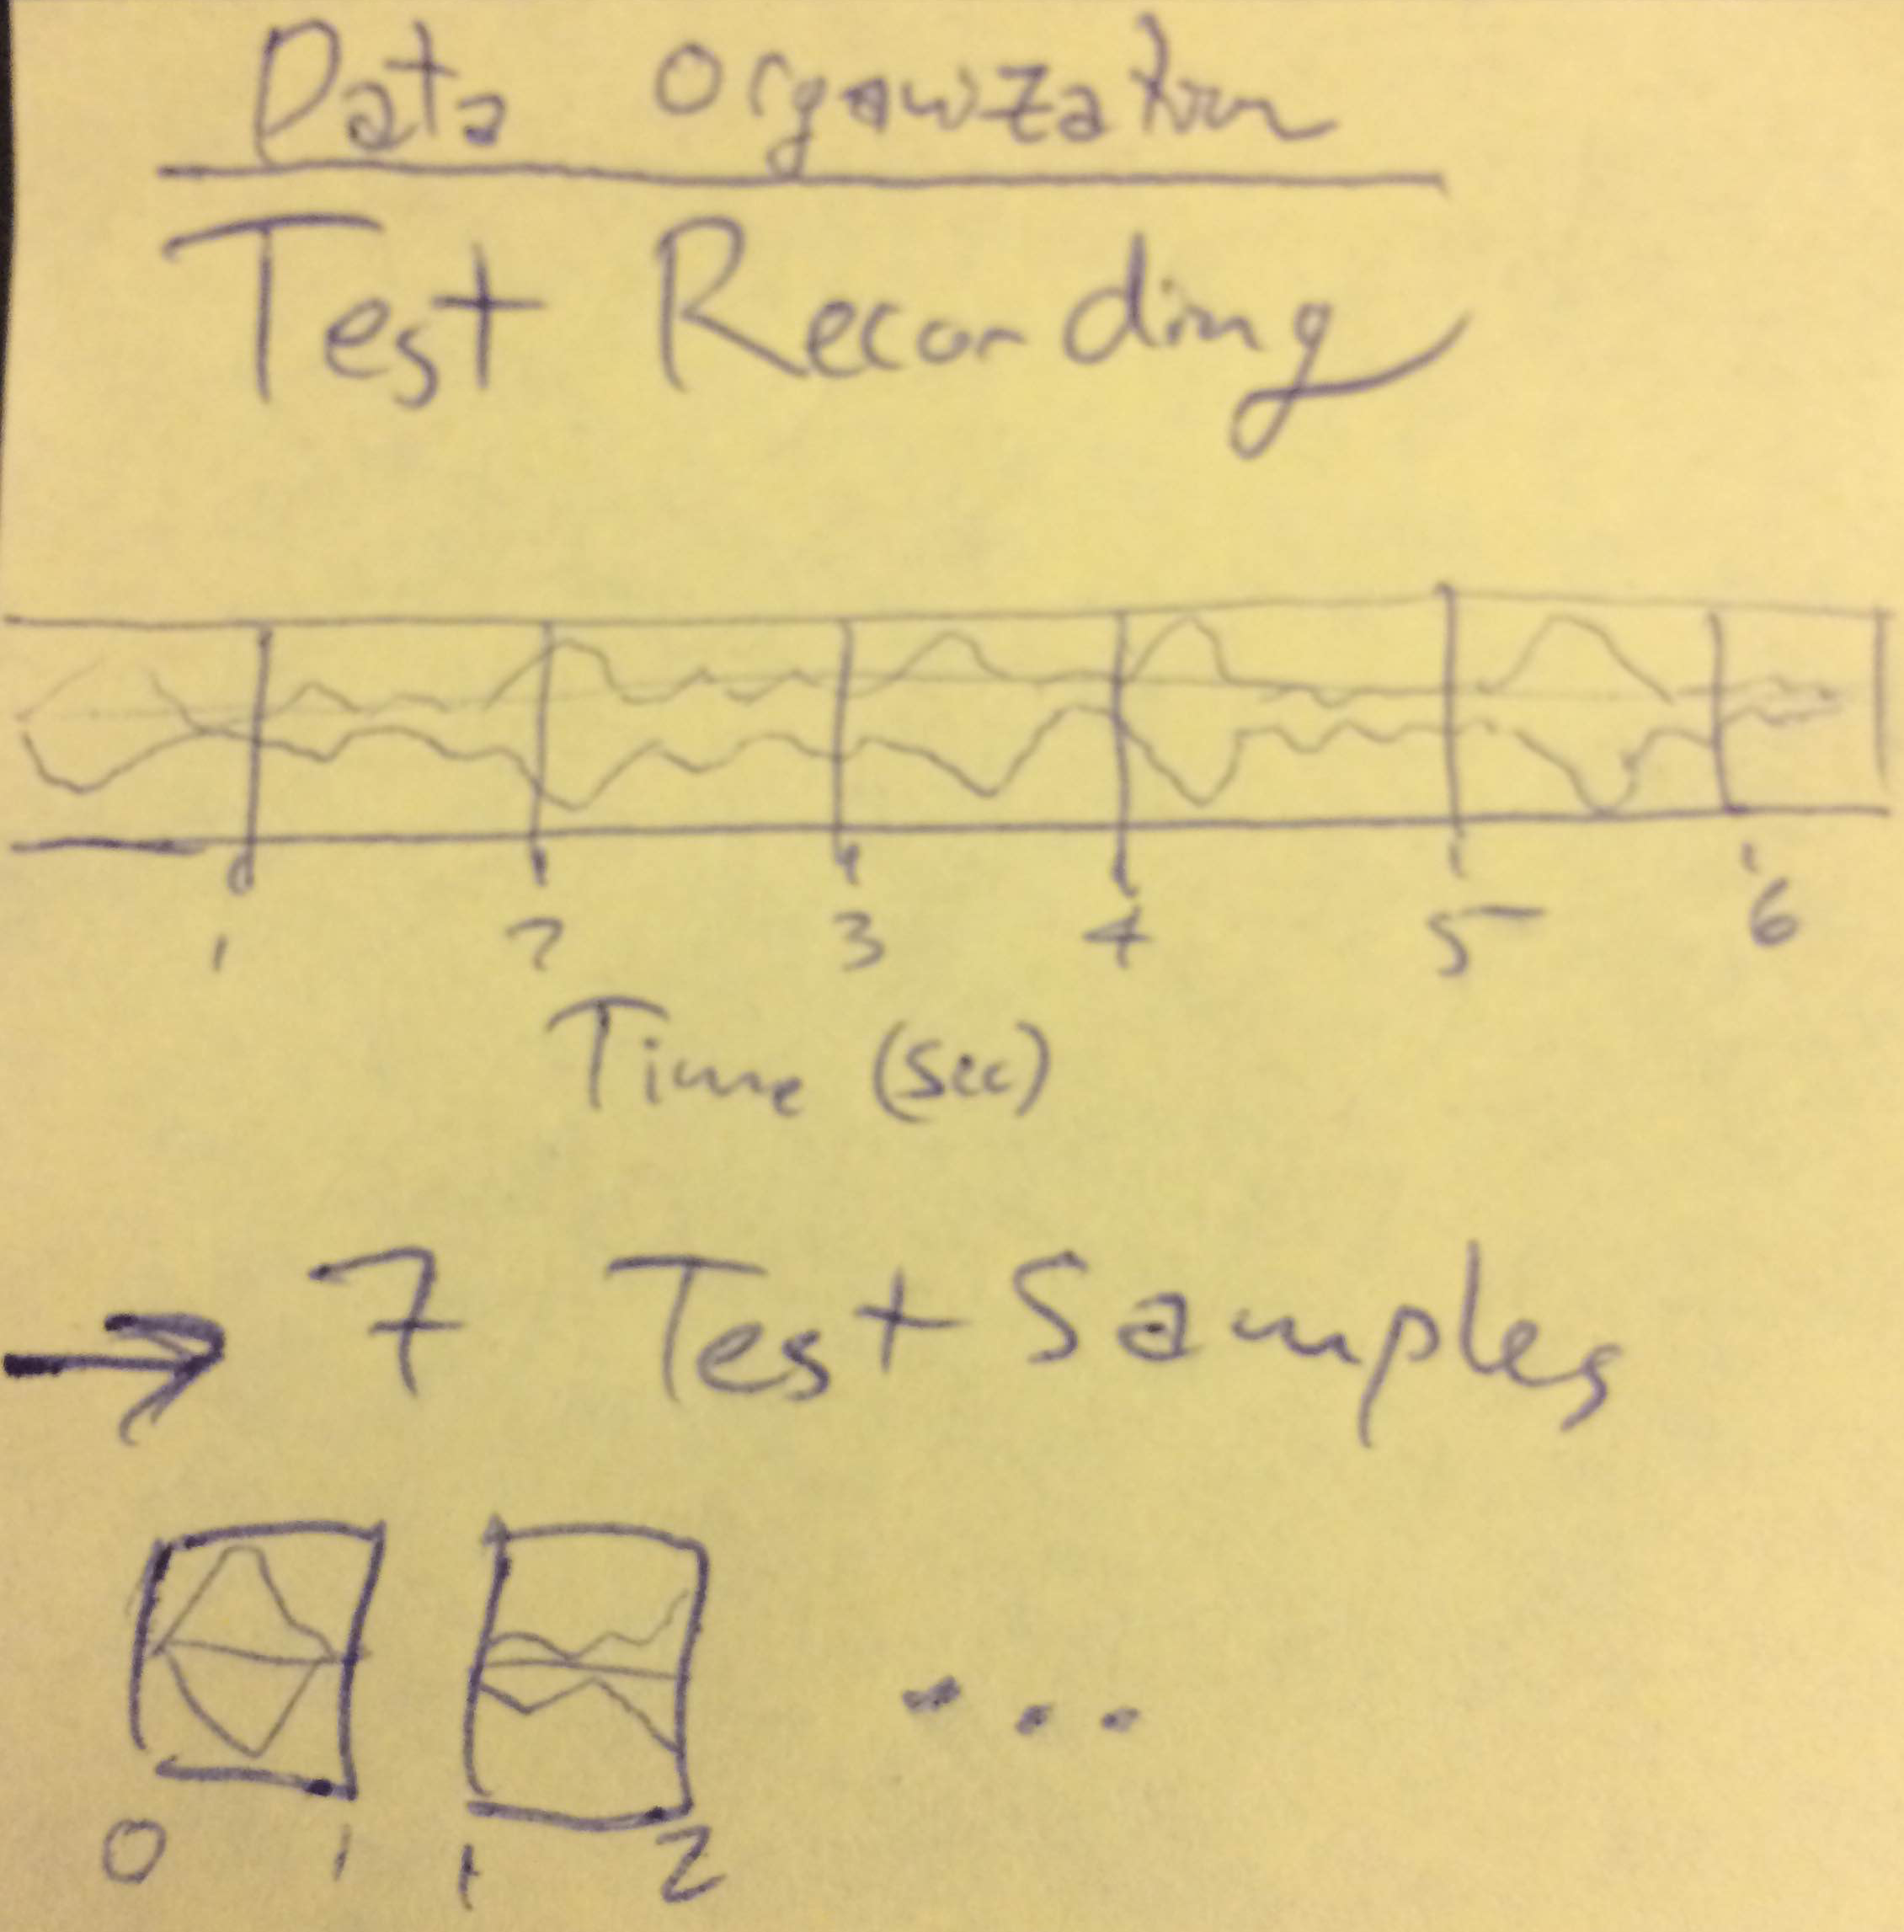 Data Organization
Test Recording
1 2 3 4 5 6
Time (sec)
→ 7 Test Samples
0 1 1 2 ...